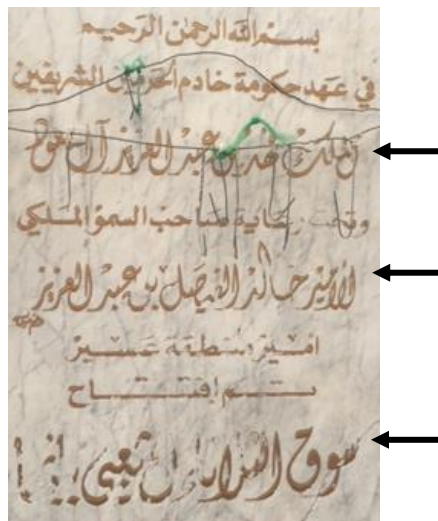 بسم الله الرحمن الرحيم
في عهد حكومة خادم الحرمين الشريفين
الملك فهد بن عبد العزيز آل سعود
وتحت رعاية صاحب السمو الملكي
الأمير خالد الفيصل بن عبد العزيز
امير منطقة عسير
تم افتتاح
سوق الثلاثاء الشعبي